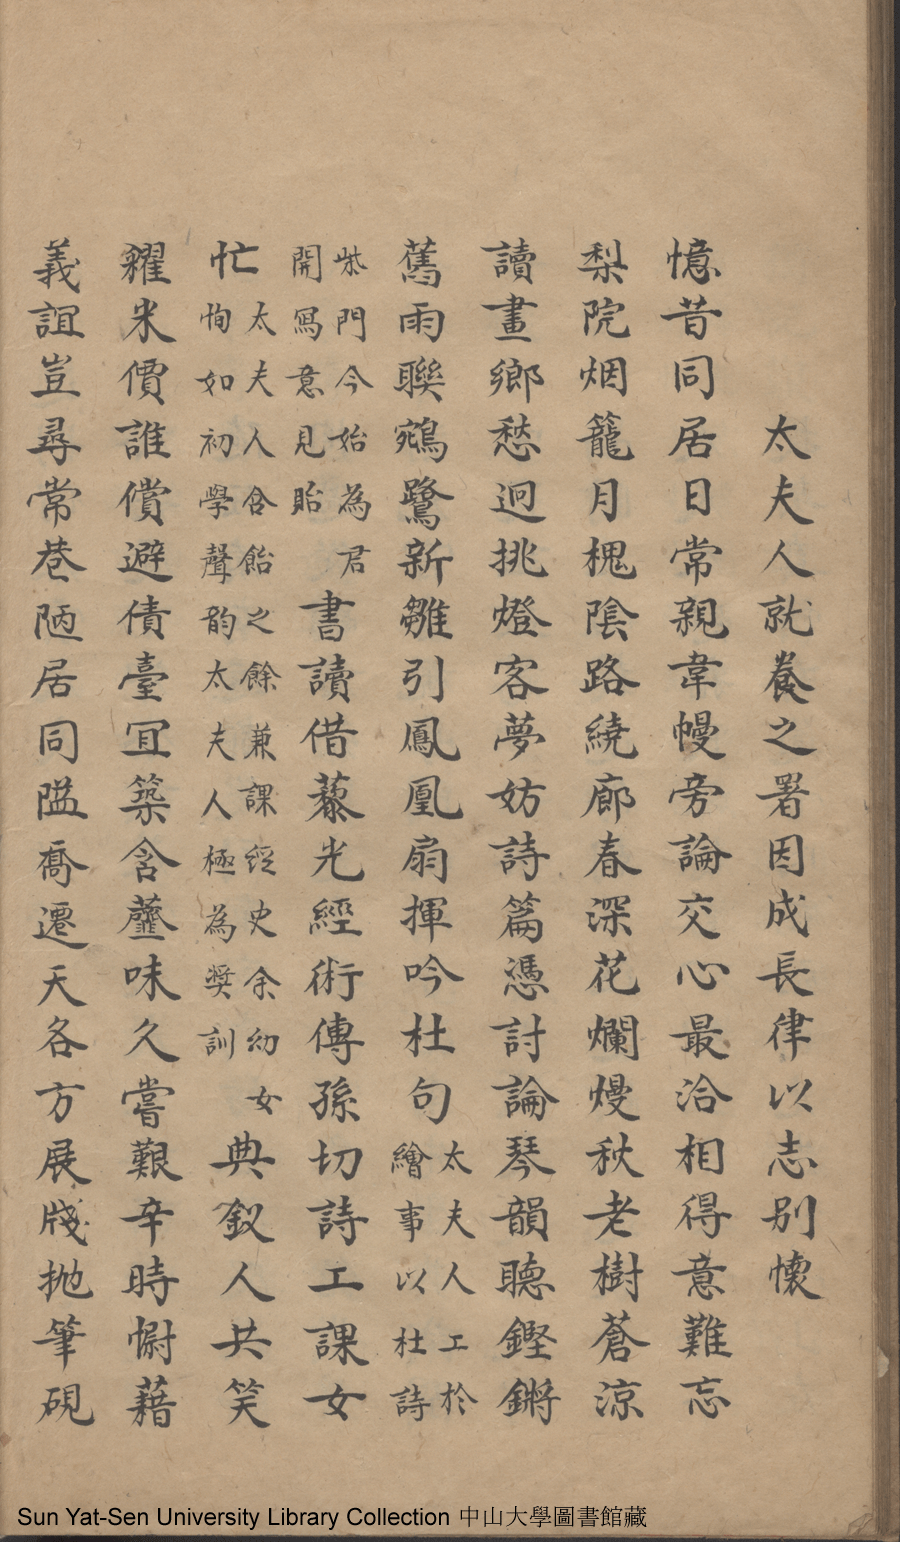 太夫人就養之署因成長律以志別懷
憶昔同居日常親韋幔旁論交心最洽相得意難忘
梨院烟籠月槐陰路繞廊春深花爛熳秋老樹蒼涼
讀畫鄉愁迥挑燈客夢妨詩篇憑討論琴韻聽鏗鏘
舊雨聯鵷鷺新雛引鳳凰扇揮吟杜句太夫人工於
繪事以杜詩
柴門今始為君
開寫意見貽書讀借藜光經術傳孫切詩工課女
忙太夫人含飴之餘兼課經史余幼女
恂如初學聲韵太夫人極為奬訓典釵人共笑
糴米價誰償避債臺冝築含虀味久嘗艱辛時慰藉
義誼豈尋常巷陋居同隘喬遷天各方展牋抛筆硯
Sun Yat-Sen University Library Collection 中山大學圖書館藏